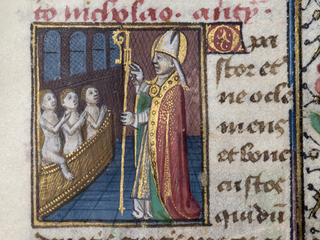 to nicholao. antỹ.
O pa
stor et
ne ocle
mens
et bone
custos
qui dũ